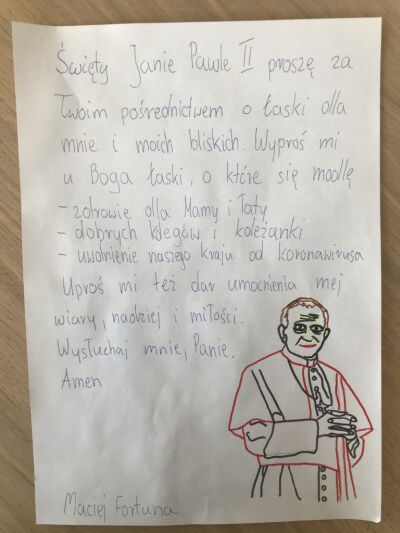 Święty Janie Pawle II proszę za
Twoim pośrednictwem o łaski dla
mnie i moich bliskich. Wyproś mi
u Boga łaski, o które się modlę
- zdrowie dla Mamy i Taty
- dobrych kolegów i koleżanki
- uwolnienie naszego kraju od koronawirusa
Uproś mi też dar umocnienia mej
wiary, nadziej i miłości.
Wysłuchaj mnie, Panie.
Amen
Maciej Fortuna